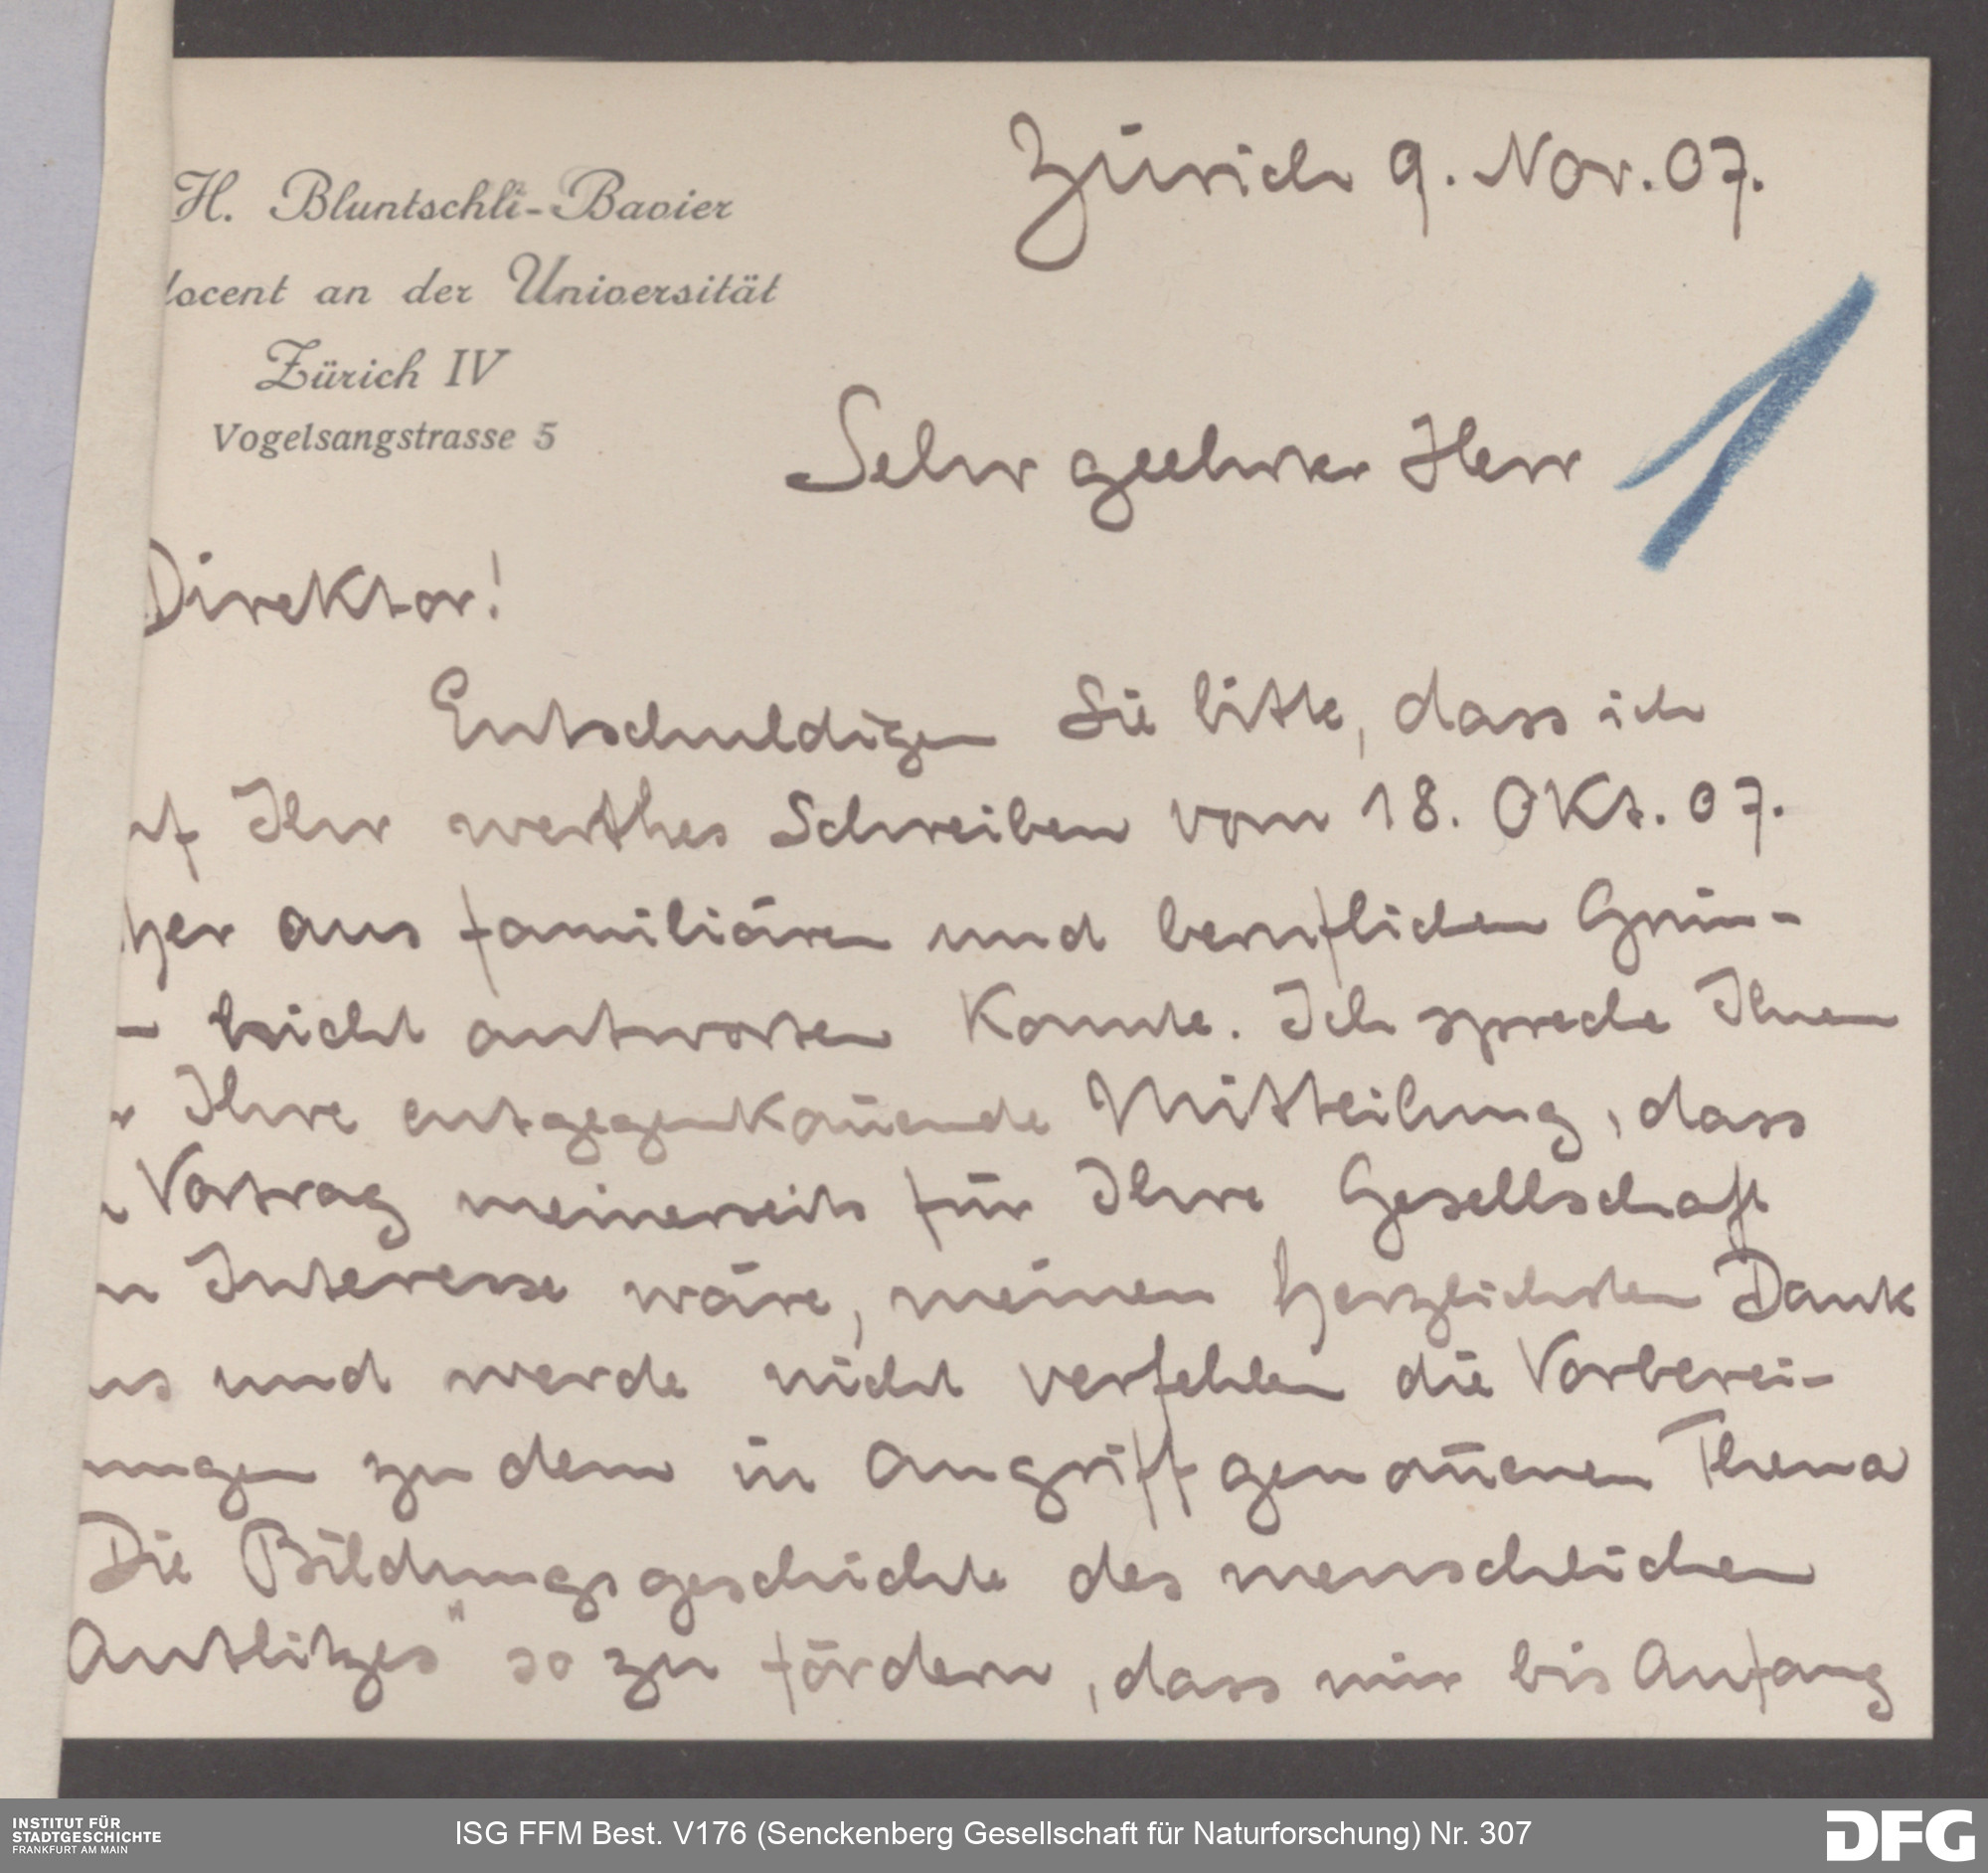 Zürich 9. Nov. 07.
H. Bluntschli-Bavier
docent an der Universität
Zürich IV
Vogelsangstrasse 5
1
Sehr geehrter Herr
Direktor!
Entschuldigen Sie bitte, dass ich
uf Ihr werthes Schreiben vom 18. Okt. 07.
her aus familiären und beruflichen Grün-
nicht antworten konnte. Ich spreche Ihnen
r Ihre entgegenkom̄ende Mitteilung, dass
n Vortrag meinerseits für Ihre Gesellschaft
n Interesse wäre, meinen herzlichsten Dank
us und werde nicht verfehlen die Vorberei-
ungen zu dem in Angriff genom̄enen Thema
Die Bildungsgeschichte des menschlichen
Antlitzes" so zu fördern, dass mir bis Anfang
INSTITUT FÜR
STADTGESCHICHTE
FRANKFURT AM MAIN
ISG FFM Best. V176 (Senckenberg Gesellschaft für Naturforschung) Nr. 307
DFG